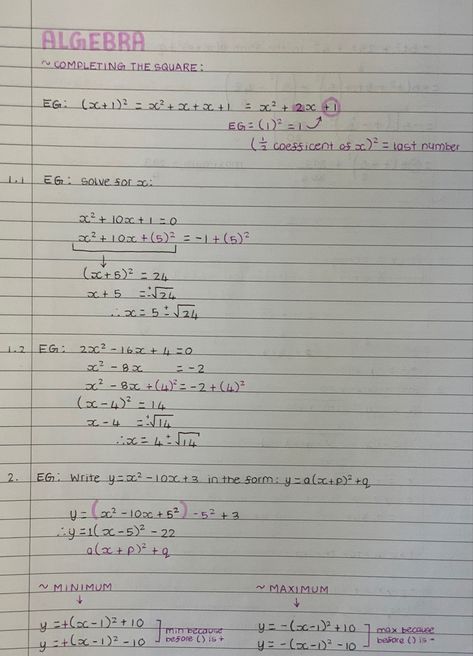 ALGEBRA
~ COMPLETING THE SQUARE:
EG: (x+1)² = x² + x + x + 1 = x² + 2x + 1
EG = (1)² = 1
(½ coefficent of x)² = last number
1.1 EG: solve for x:
x² + 10x + 1 = 0
x² + 10x + (5)² = -1 + (5)²
(x+5)² = 24
x + 5 = ±√24
∴ x = 5 ± √24
1.2 EG: 2x² - 16x + 4 = 0
x² - 8x = -2
x² - 8x + (4)² = -2 + (4)²
(x - 4)² = 14
x - 4 = ±√14
∴ x = 4 ± √14
2. EG: Write y = x² - 10x + 3 in the form: y = a(x+p)² + q
y = (x² - 10x + 5²) - 5² + 3
∴ y = 1(x - 5)² - 22
a(x + p)² + q
~ MINIMUM
~ MAXIMUM
y = +(x - 1)² + 10
y = +(x - 1)² - 10
min because
before () is +
y = -(x - 1)² + 10
y = -(x - 1)² - 10
max because
before () is -